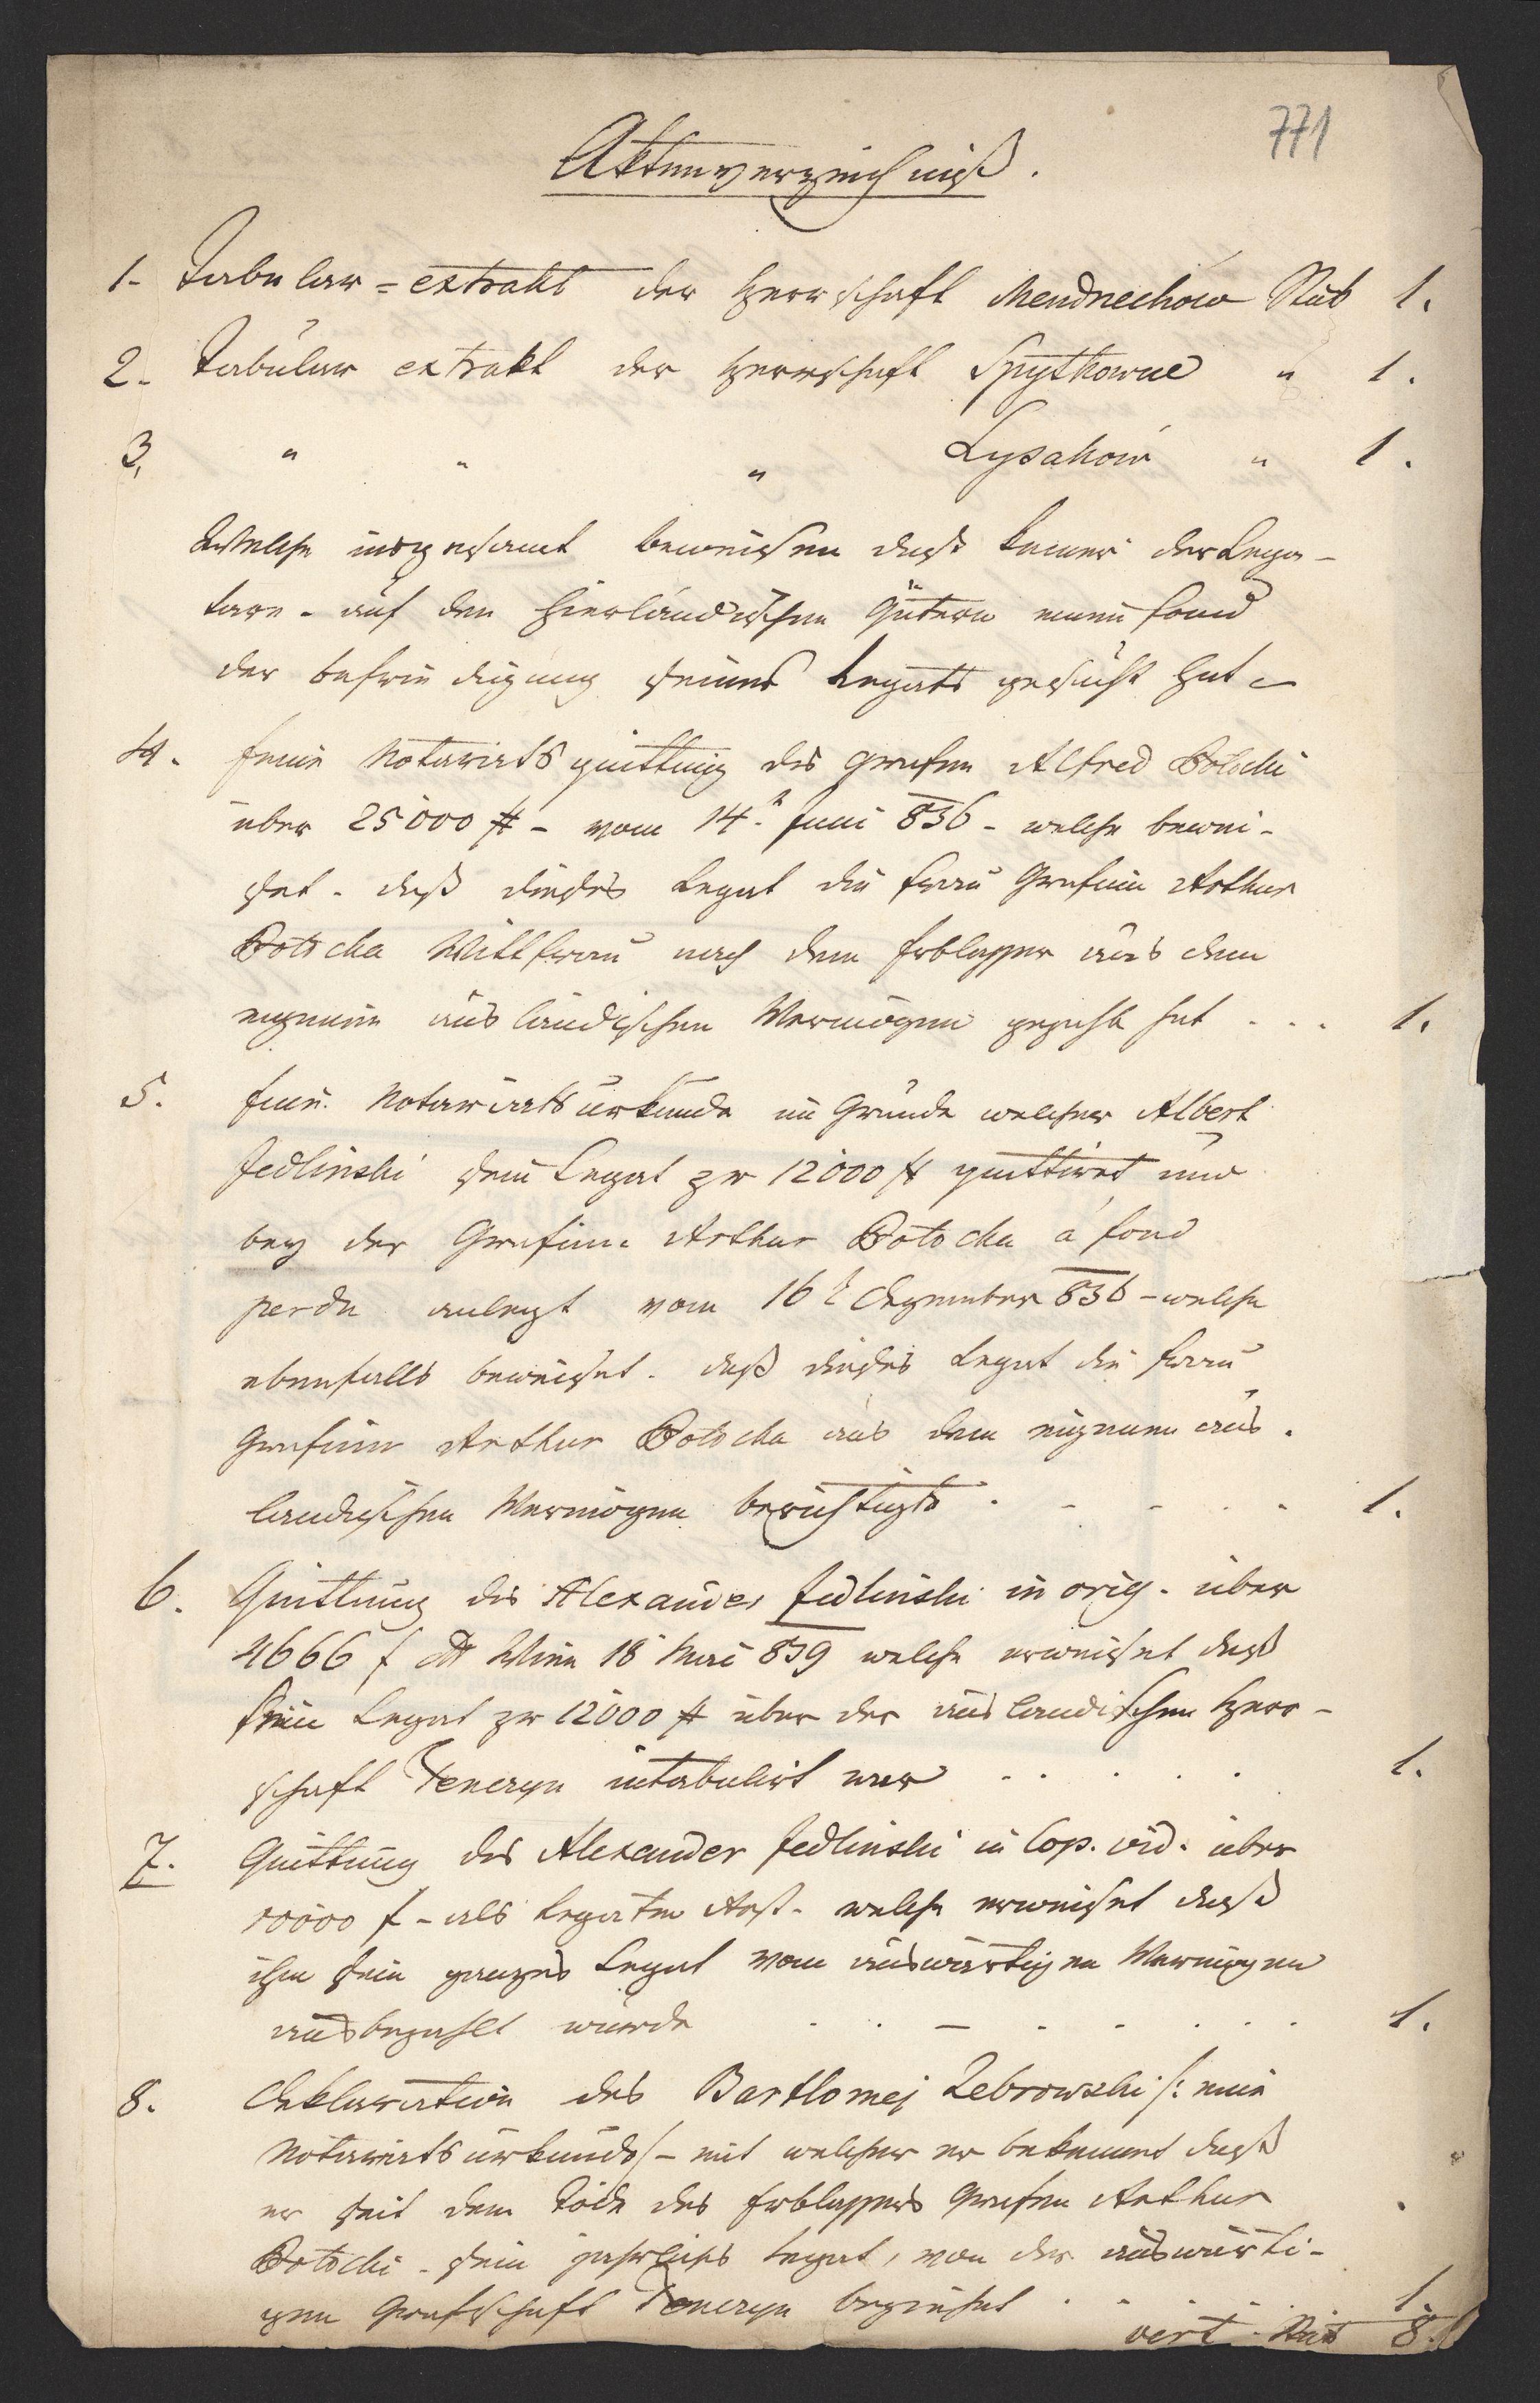 771
Aktenverzeichniß.
1. Tabular=extrakt der Herrschaft Mendnechów Stük 1.
2. Tabular extrakt der Herrschaft Spytkowice " 1.
3. " " " Łysaków " 1.
Welche insgesamt beweisen daß keiner der Lega-
tare - auf den hierländischen Gütern einen fond
der befriedigung seines Legats gesucht hat.
4. Eine Notariats quittung des Grafen Alfred Potocki
über 25000 # - vom 14t Juni 836 - welche bewei-
set - daß dieses Legat die Frau Gräfin Arthur
Potocka Wittfrau nach dem Erblasser aus dem
eigenen ausländischen Vermögen gezahlt hat . . . 1.
5. Eine Notariatsurkunde im Grunde welcher Albert
Jedlinski sein Legat pr 12000 # quittiret und
bey der Gräfin Arthur Potocka á fond
perdu anlegt vom 16t Dezember 836 - welche
ebenfalls beweiset - daß dieses Legat die Frau
Gräfin Arthur Potocka aus dem eigenen aus-
ländischen Vermögen berichtigte . - - . - 1.
6. Quittung des Alexander Jedlinski in orig. über
4666 f dt Wien 18 Mai 839 welche erweiset daß
sein Legat pr 12000 # über der ausländischen Herr-
schaft Tenczyn intabulirt war - . . . . 1.
7. Quittung des Alexander Jedlinski in Cop. vid. über
10000 f - als Legaten Rest - welche erweiset daß
ihm sein ganzes Legat vom auswärtigen Vermögen
ausbezahlt wurde . . - . . . . . 1.
8. Deklaration des Bartlomej Zebrowski /: eine
Notariatsurkunde/- mit welcher er bekennt daß
er seit dem Tode des Erblassers Grafen Arthur
Potocki - sein jährliches Legat, von der auswärti-
gen Grafschaft Tenczyn beziehet . - . - . 1.
vert. Stük 8.